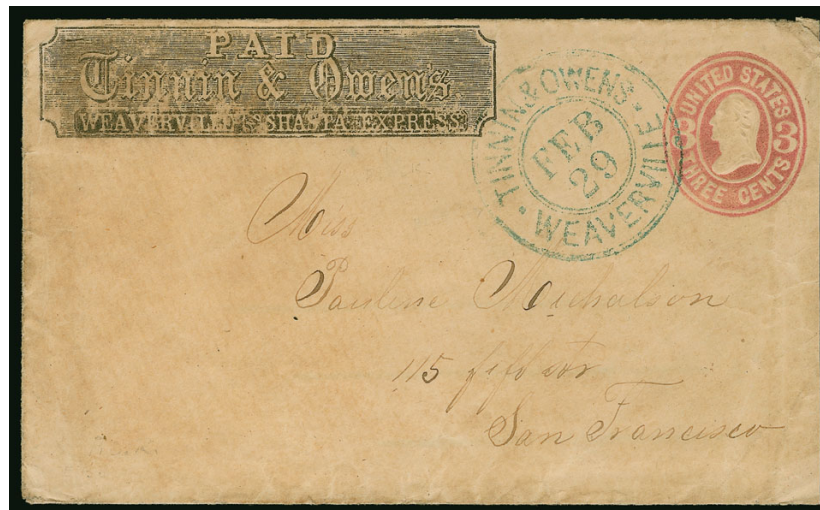 PAID
Tinnin & Owen's
WEAVERVILLE & SHASTA EXPRESS
TINNIN & OWENS
FEB
29
WEAVERVILLE
UNITED STATES
3 3
THREE CENTS
Miss
Pauline Michalson
115 fifth str
San Francisco